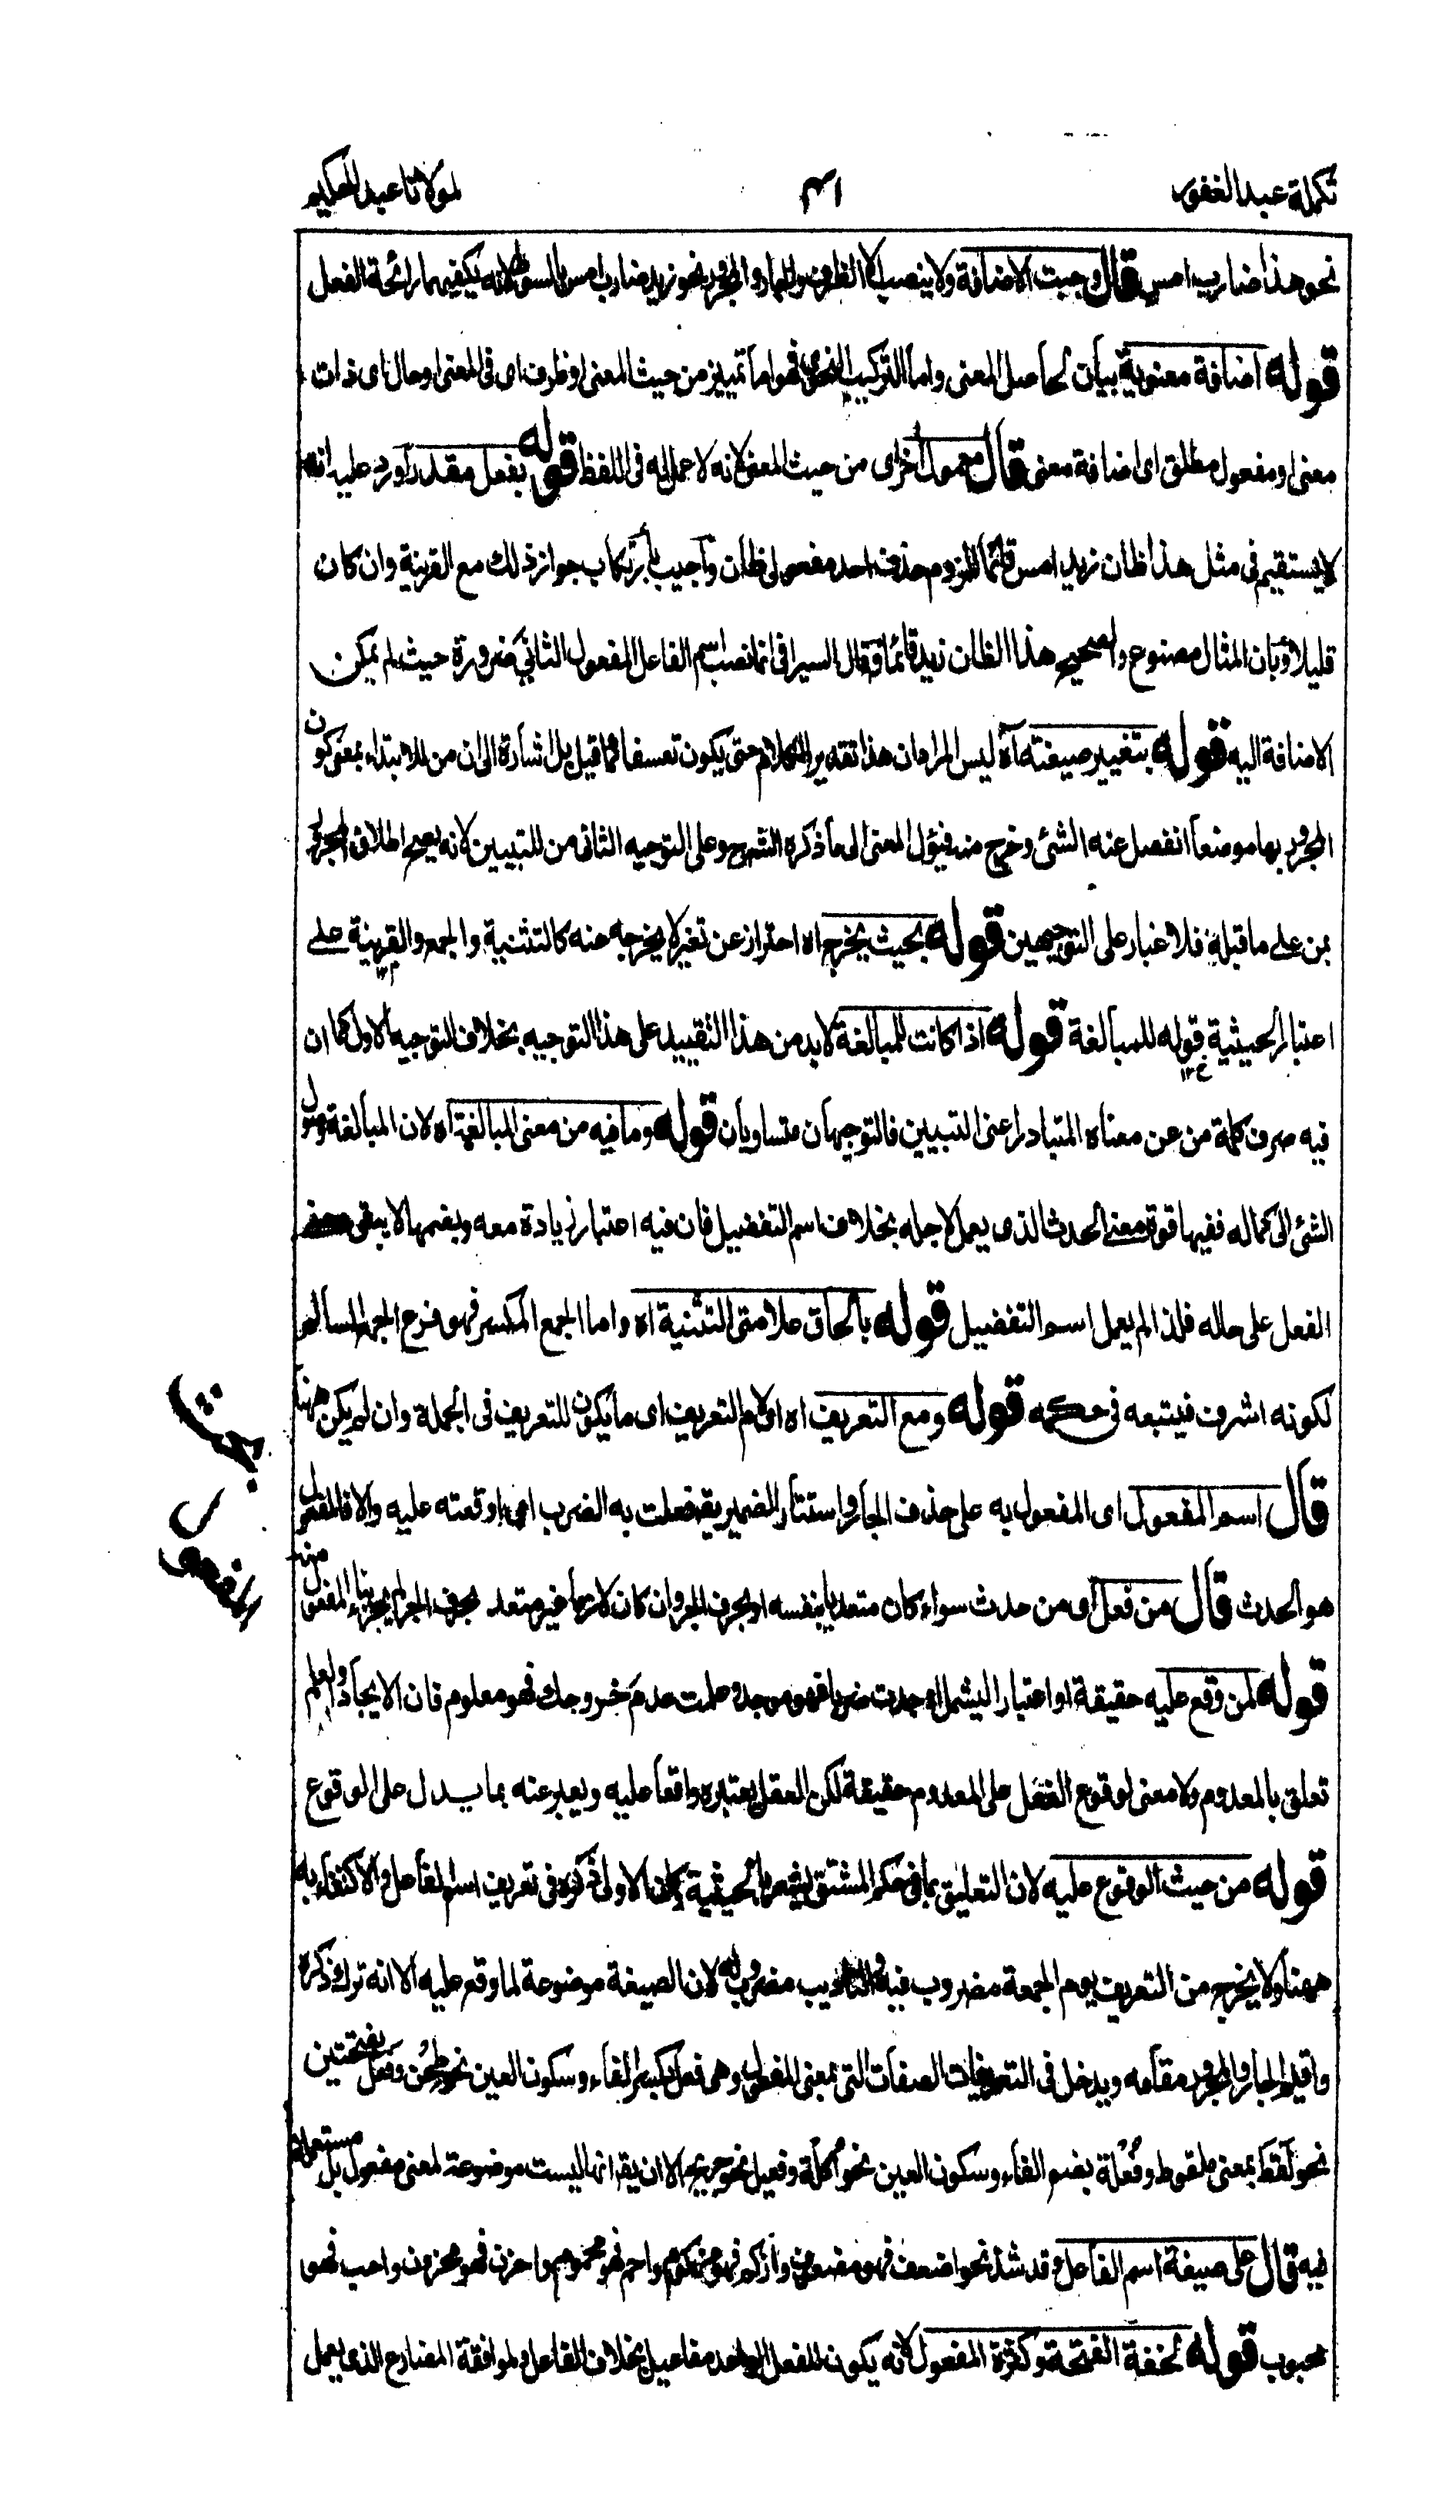 تكملة عبد الغفور
٣١
لمولانا عبد الحكيم
نحو هذا ضارب امس قال وجبت الاضافة ولا ينصب الا الظرف والجار والمجرور نحو زيد ضارب امس بالسوط لانه يكفيهما رائحة الفعل
قوله اضافة معنوية بيان لحاصل المعنى واما التركيب النحوى فهو اما تمييز من حيث المعنى او ظرف اى فى المعنى او حال اى ذات
معنى او مفعول مطلق اى اضافة معنى قال معمول اخر اى من حيث المعنى لانه لا عمل له فى اللفظ قوله بفعل مقدر اورد عليه انه
لا يستقيم فى مثل هذا ظان زيد امس قائما للزوم حذف احد مفعولى ظان واجيب بارتكاب جواز ذلك مع القرينة وان كان
قليلا وبان المثال مصنوع والصحيح هذا الظان زيد قائما فقال السيرافى انما نصب اسم الفاعل المفعول الثانى ضرورة حيث لم يمكن
الاضافة اليه قوله بتغيير صيغته آه ليس المراد ان هذا تقدير الكلام حتى يكون تعسفا كما قيل بل اشارة الى ان من للابتداء بمعنى كون
المجرور بها موضعا انفصل عنه الشئ وخرج منه فيؤل المعنى الى ما ذكره الشرح وعلى التوجيه الثانى من للتبيين لانه يصح اطلاق المجرور
بمن على ما قبله فلا غبار على التوجيهين قوله بحيث يخرج اه احتراز عن تغير لا يخرجه عنه كالتثنية والجمع والقرينة على
اعتبار الحيثية قوله للمبالغة قوله اذا كانت للمبالغة لابد من هذا التقييد على هذا التوجيه بخلاف التوجيه الاول كما ان
فيه صرف كلمة من عن معناه المتبادر اعنى التبيين فالتوجيهان متساويان قوله وما فيه من معنى المبالغة اه لان المبالغة وصول
الشئ الى كماله ففيها قوة معنى الحدث الذى يعمل لاجله بخلاف اسم التفضيل فان فيه اعتبار زيادة معه وبضمها لا يبقى معنى
الفعل على حاله فلذا لم يعمل اسم التفضيل قوله بالحاق علامتى التثنية اه واما الجمع المكسر فهو فرع الجمع السالم
لكونه اشرف فيتبعه فى حكمه قوله ومع التعريف اه اى لام التعريف اى ما يكون للتعريف فى الجملة وان لم يكن ههنا
قال اسم المفعول اى المفعول به على حذف الجار واستتار الضمير يقال فعلت به الضرب اى اوقعته عليه والا فالمفعول
هو الحدث قال من فعل اى من حدث سواء كان متعديا بنفسه او بحرف الجر وان كان لازما غير متعد بحرف الجر لم يجز بناء المفعول منه
قوله لمن وقع عليه حقيقة او اعتبارا ليشمل اوجدت ضربا فهو موجد وعلمت عدم خروجك فهو معلوم فان الايجاد والعلم
تعلق بالمعدوم ولا معنى لوقوع الفعل على المعدوم حقيقة لكن العقل يعتبره واقعا عليه ويعبر عنه بما يدل على الوقوع
قوله من حيث الوقوع عليه لان التعليق بما فى حكم المشتق يشعر بالحيثية كان الاولى ذكره فى تعريف اسم الفاعل والاكتفاء به
ههنا ولا يخرج من التعريف يوم الجمعة مضروب فيه والتاديب مضروب له لان الصيغة موضوعة لما وقع عليه الا انه ترك ذكره
واقيم الجار والمجرور مقامه ويدخل فى التعريفات الصفات التى بمعنى المفعول وهى فعل بكسر الفاء وسكون العين نحو طحن وفعل بفتحتين
نحو لقط بمعنى ملقوط وفعلة بضم الفاء وسكون العين نحو اكلة وفعيل نحو جريح الا ان يقال انها ليست موضوعة لمعنى مفعول بل مستعملة
فيه قال على صيغة اسم الفاعل وقد شذ نحو اضعف فهو مضعوف وازكم فهو مزكوم واحم فهو محموم واحزن فهو محزون واحب فهو
محبوب قوله لخفة الفتحة وكثرة المفعول لانه يكون للفعل الواحد مفاعيل بخلاف الفاعل ولموافقة المضارع الذى يعمل
بحث
المفعول